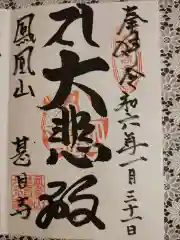 奉拝 令和六年一月三十一日
大悲殿
鳳凰山 甚目寺